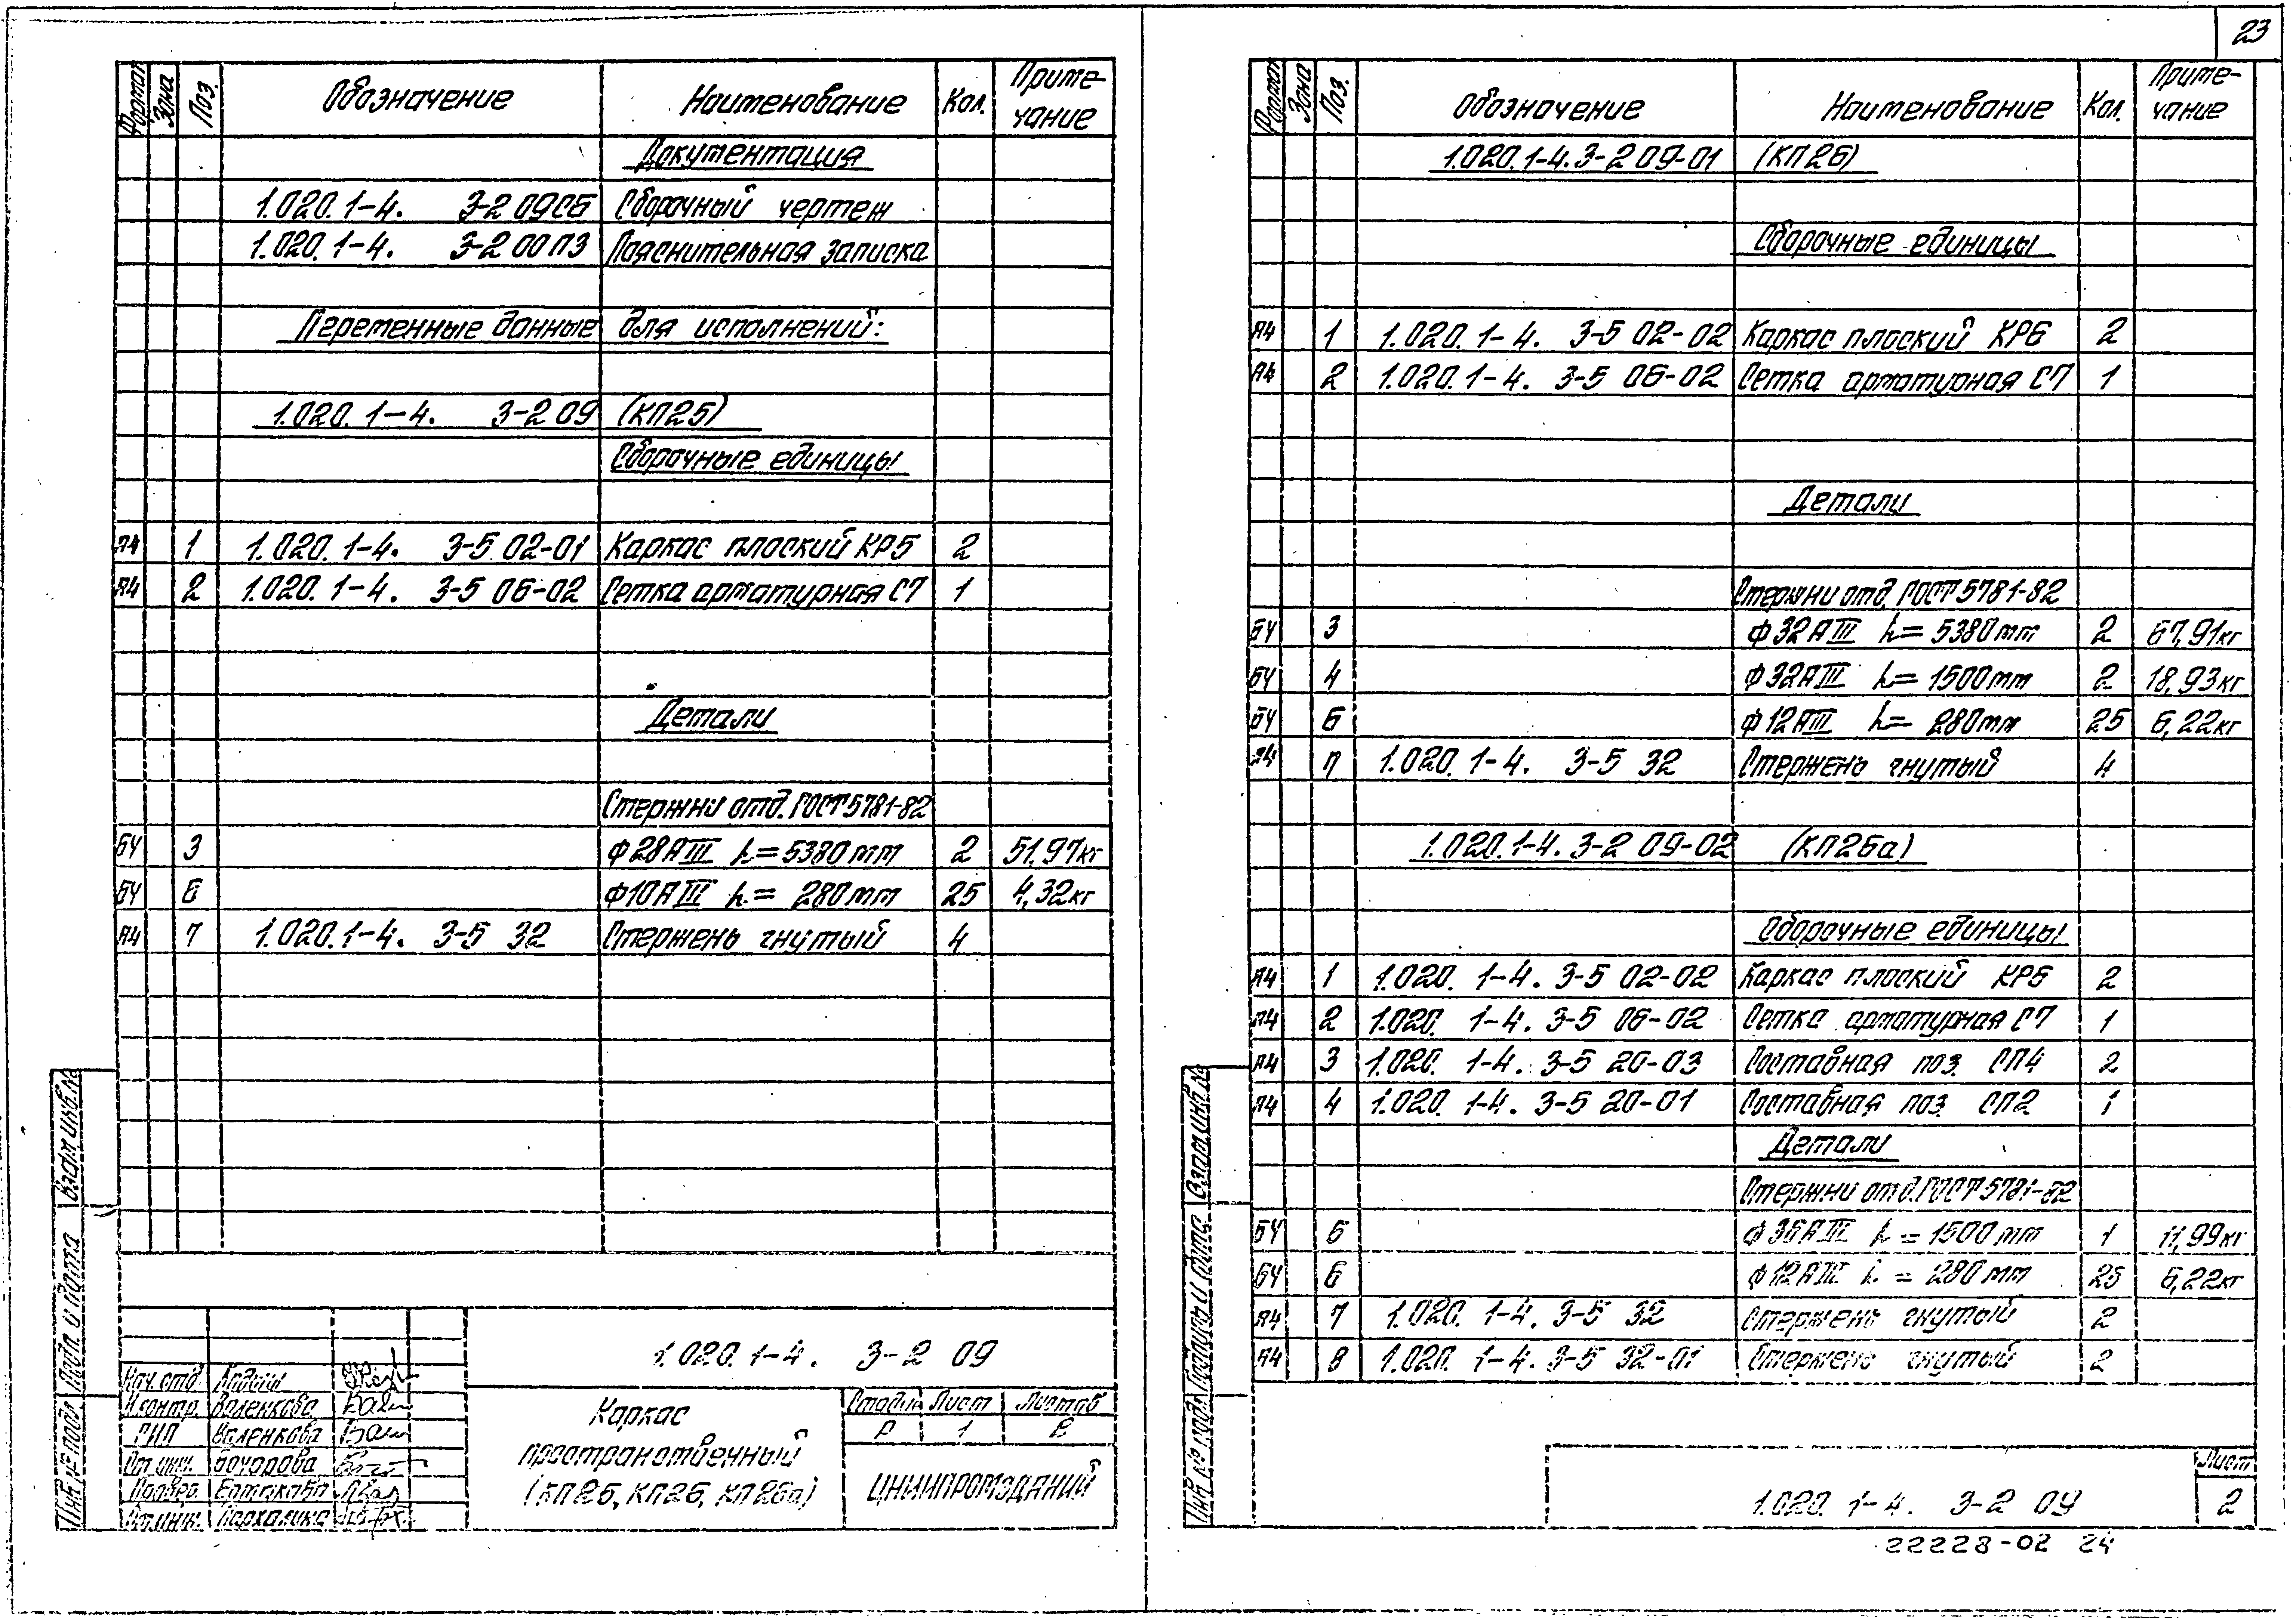 23
Формат Зона Поз. Обозначение Наименование Кол. Приме-чание
Документация
1.020.1-4. 3-2 09СБ Сборочный чертеж
1.020.1-4. 3-2 00ПЗ Пояснительная записка
Переменные данные для исполнений:
1.020.1-4. 3-2 09 (КП25)
Сборочные единицы
А4 1 1.020.1-4. 3-5 02-01 Каркас плоский КР5 2
А4 2 1.020.1-4. 3-5 06-02 Сетка арматурная С7 1
Детали
Стержни отд. ГОСТ 5781-82
БЧ 3 Ф28АIII ℓ=5380мм 2 51,97кг
БЧ 6 Ф10АIII ℓ= 280мм 25 4,32кг
А4 7 1.020.1-4. 3-5 32 Стержень гнутый 4
Взам.инв.№
Подп. и дата
Инв.№ подл.
1.020.1-4. 3-2 09
Нач.отд.
Н.контр. Валенкова
ГИП Валенкова
Ст.инж. Бочорова
Провер. Ермакова
Ст.инж. Пархалина
Каркас
пространственный
(КП25, КП26, КП26а)
Стадия Лист Листов
Р 1 2
ЦНИИПРОМЗДАНИЙ
Формат Зона Поз. Обозначение Наименование Кол. Приме-чание
1.020.1-4.3-2 09-01 (КП26)
Сборочные единицы
А4 1 1.020.1-4. 3-5 02-02 Каркас плоский КР6 2
А4 2 1.020.1-4. 3-5 06-02 Сетка арматурная С7 1
Детали
Стержни отд. ГОСТ 5781-82
БЧ 3 Ф32АIII ℓ= 5380мм 2 67,91кг
БЧ 4 Ф32АIII ℓ= 1500мм 2 18,93кг
БЧ 6 Ф12АIII ℓ= 280мм 25 6,22кг
А4 7 1.020.1-4. 3-5 32 Стержень гнутый 4
1.020.1-4.3-2 09-02 (КП26а)
Сборочные единицы
А4 1 1.020. 1-4. 3-5 02-02 Каркас плоский КР6 2
А4 2 1.020. 1-4. 3-5 06-02 Сетка арматурная С7 1
А4 3 1.020. 1-4. 3-5 20-03 Составная поз. СП4 2
А4 4 1.020. 1-4. 3-5 20-01 Составная поз. СП2 1
Детали
Стержни отд. ГОСТ 5781-82
БЧ 5 Ф36АIII ℓ = 1500мм 1 11,99кг
БЧ 6 Ф12АIII ℓ = 280мм 25 6,22кг
А4 7 1.020. 1-4. 3-5 32 Стержень гнутый 2
А4 8 1.020. 1-4. 3-5 32-01 Стержень гнутый 2
Взам.инв.№
Подпись и дата
Инв.№ подл.
1.020. 1-4. 3-2 09
Лист
2
22228-02 24